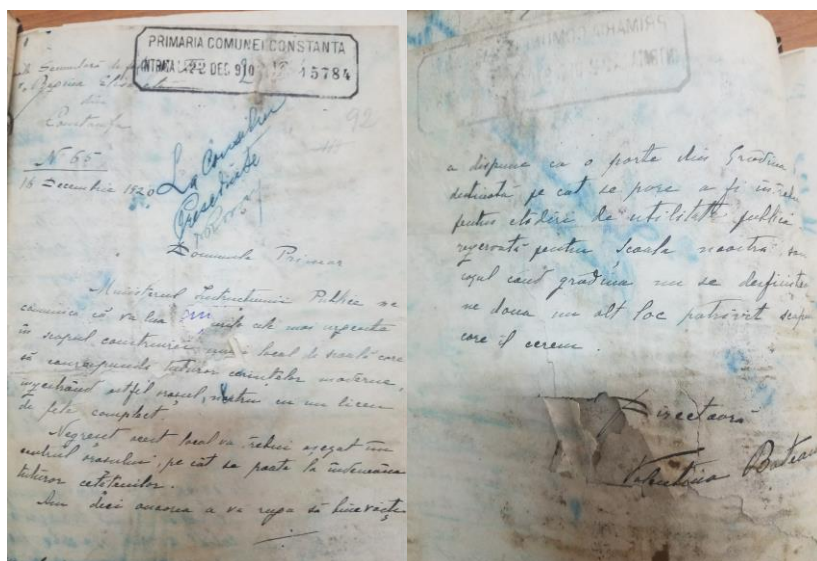 PRIMARIA COMUNEI CONSTANTA
INTRATA 22 DEC 910 15784
Secundară de
Regina
din
Constanța
92
N 65
16 Decembrie 1920
La Consiliu
Președinte
Domnule Primar
Ministerul Instrucțiunii Publice ne
comunică că va lua cele mai urgente
în scopul construirei unui local de școală care
să corespundă tuturor cerințelor moderne,
înzestrând astfel orașul nostru cu un liceu
de fete complect
Negreșit acest local va trebui așezat în
centrul orașului, pe cât se poate la îndemâna
tuturor cetățenilor.
Am deci onoarea a vă ruga să binevoiți
a dispune ca o parte din Grădina
destinată pe cât se pare a fi
pentru clădiri de utilitate publică
rezervată pentru școala noastră, sau
cazul când grădina nu se desființează
ne dona un alt loc potrivit scopului
care îl cerem.
Directoară
Valentina